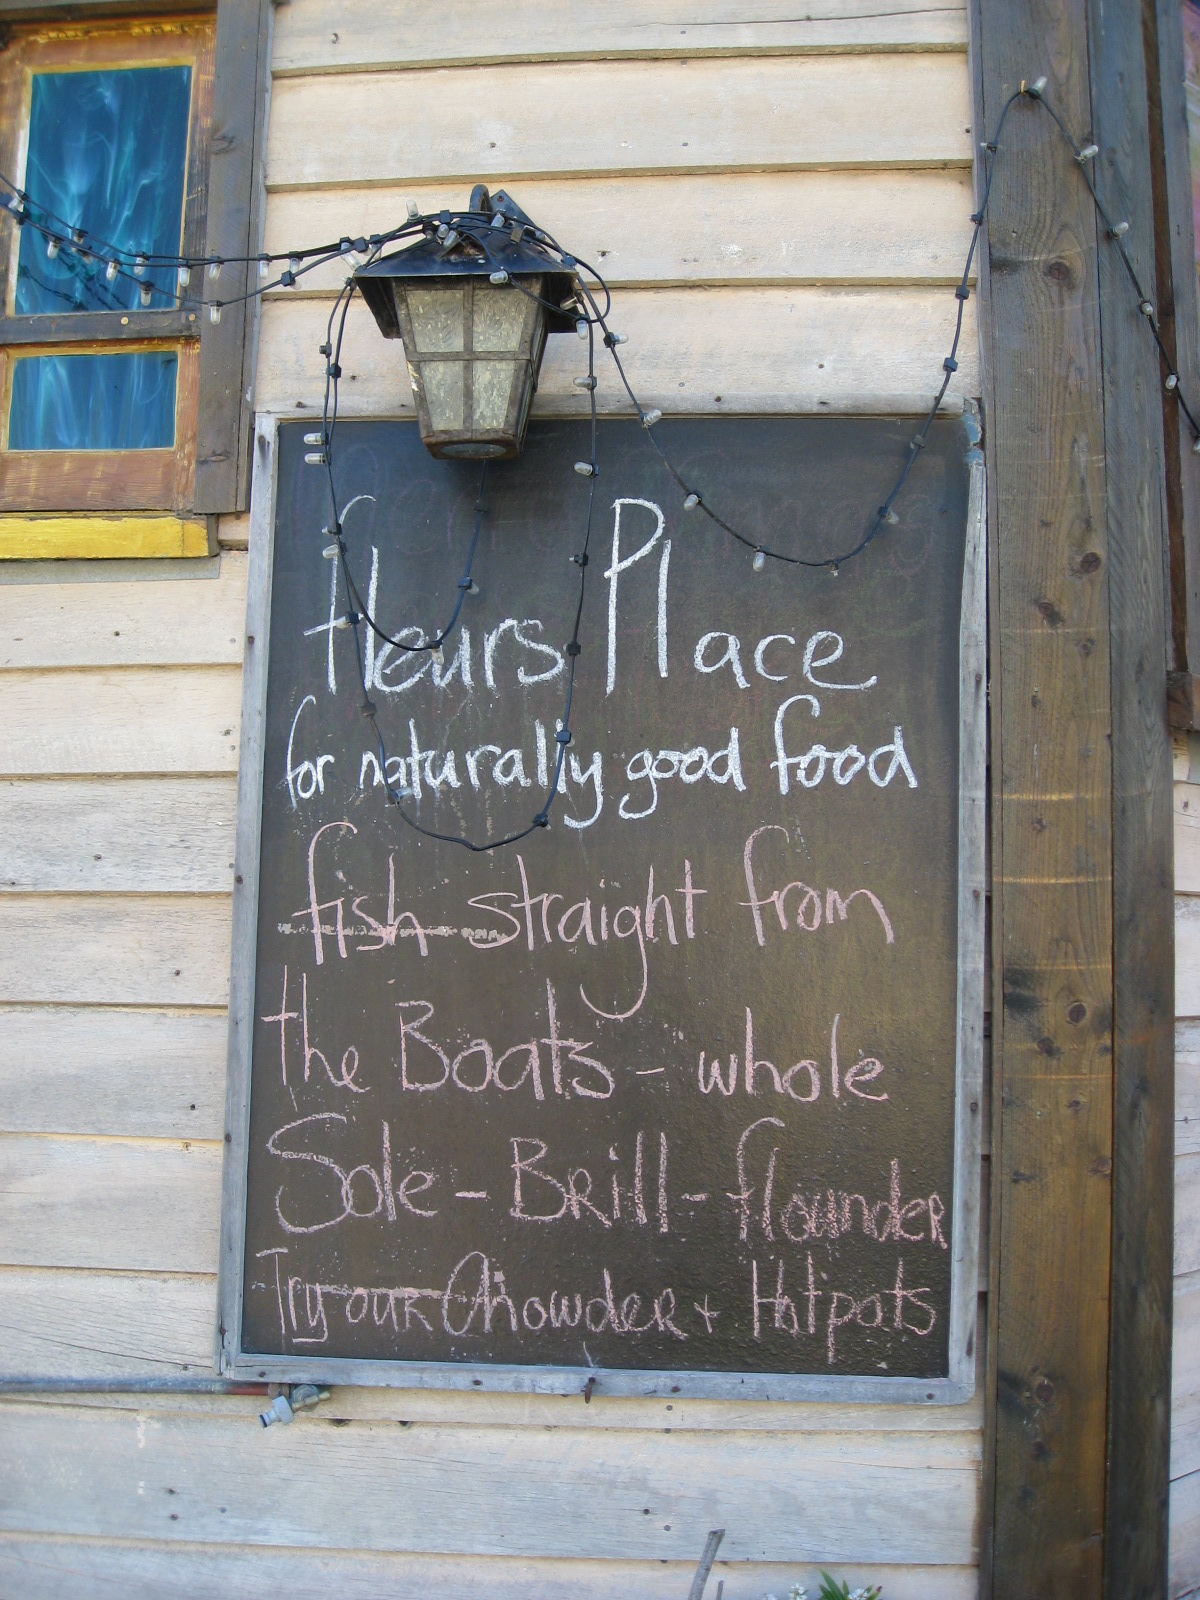 fleurs Place
for naturally good food
fish straight from
the Boats - whole
Sole - Brill - flounder
Try our Chowder + Hotpots